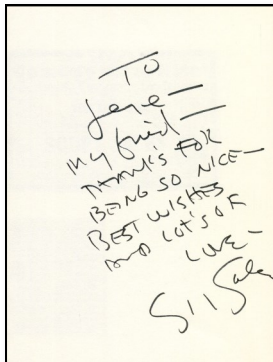 TO
Gene —
my friend —
THANK'S FOR
BEING SO NICE —
BEST WISHES
AND LOT'S OF
LOVE —